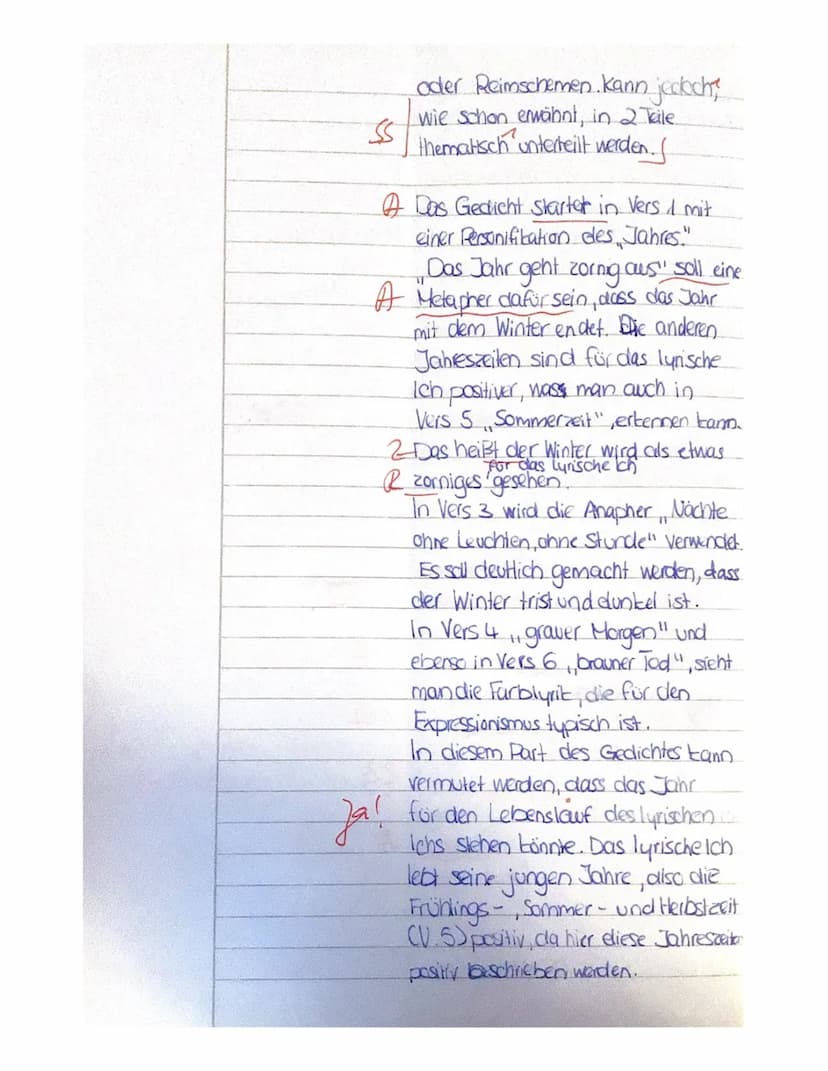 oder Reimschemen. Kann jedoch,
SS wie schon erwähnt, in 2 Teile
thematisch unterteilt werden.
A Das Gedicht startet in Vers 1 mit
einer Personifikation des „Jahres."
„Das Jahr geht zornig aus" soll eine
A Metapher dafür sein, dass das Jahr
mit dem Winter endet. Die anderen
Jahreszeiten sind für das lyrische
Ich positiver, was man auch in
Vers 5 „Sommerzeit", erkennen kann.
Z Das heißt der Winter wird als etwas
für das lyrische Ich
R zorniges gesehen.
In Vers 3 wird die Anapher „Nächte
ohne Leuchten, ohne Stunde" verwendet.
Es soll deutlich gemacht werden, dass
der Winter trist und dunkel ist.
In Vers 4 „grauer Morgen" und
ebenso in Vers 6 „brauner Tod", sieht
man die Farblyrik, die für den
Expressionismus typisch ist.
In diesem Part des Gedichtes kann
vermutet werden, dass das Jahr
Ja! für den Lebenslauf des lyrischen
Ichs stehen könnte. Das lyrische Ich
lebt seine jungen Jahre, also die
Frühlings-, Sommer- und Herbstzeit
(V. 5) positiv, da hier diese Jahreszeiten
positiv beschrieben werden.